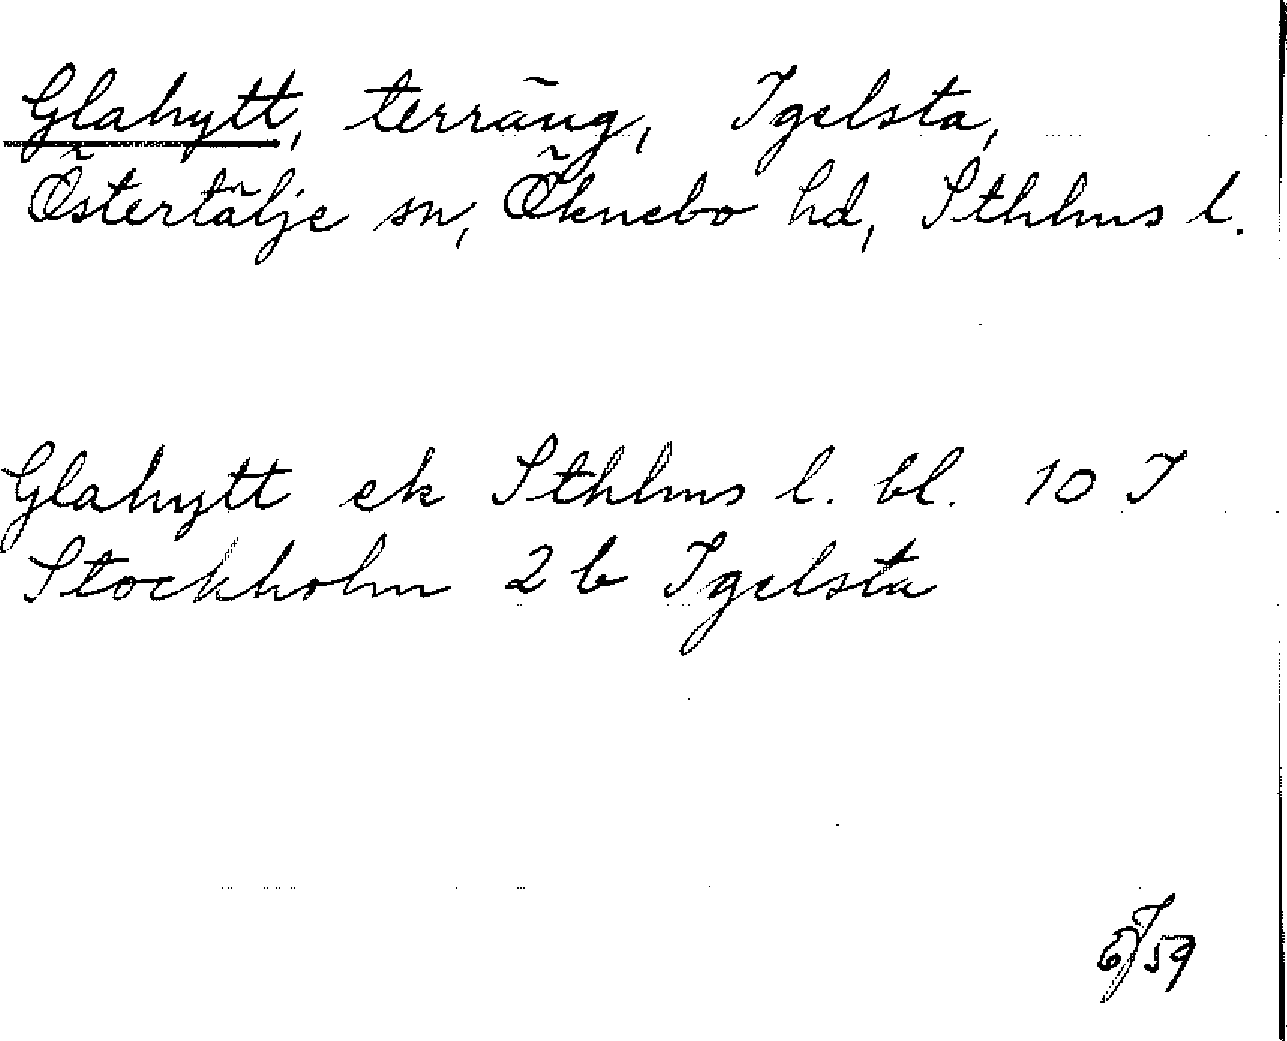 Glahytt, terräng, Igelsta,
Östertälje sn, Öknebo hd, Sthlms l.
Glahytt ek Sthlms l. bl. 10 I
Stockholm 2 b Igelsta